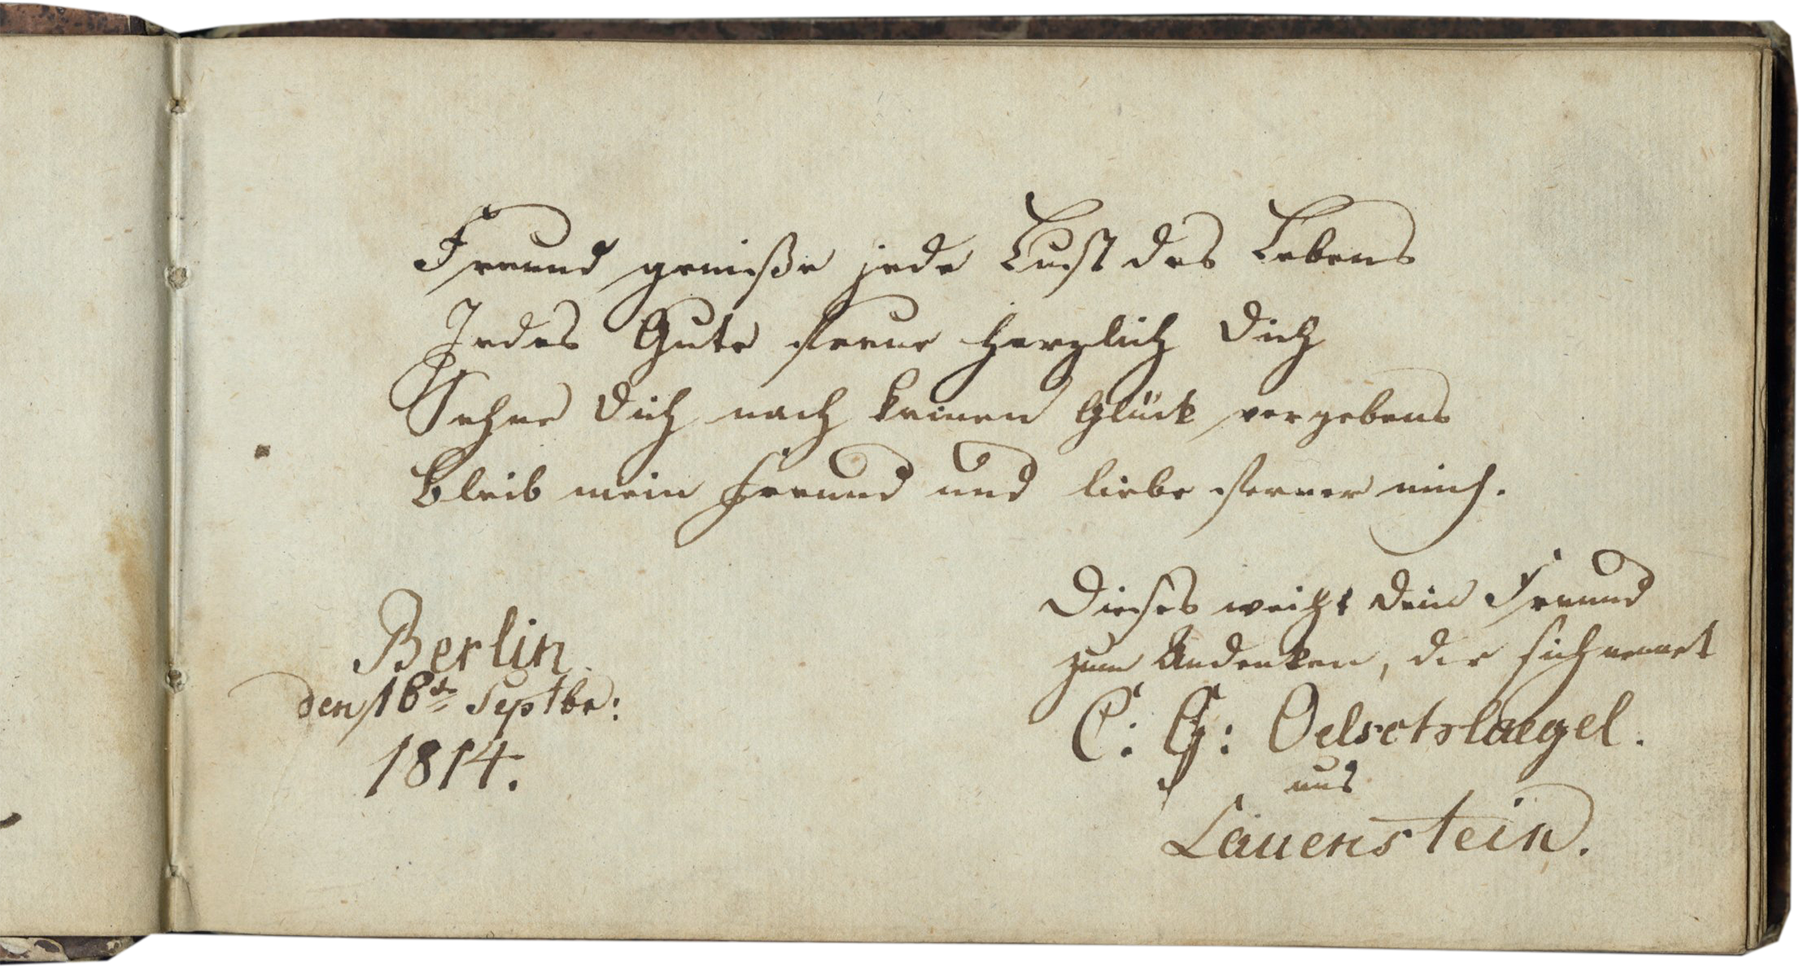 Freund genieße jede Lust des Lebens
Jedes Gute freue herzlich Dich
Sehne Dich nach keinen Glück vergebens
Bleib mein Freund und liebe ferner mich.
Dieses weiht dein Freund
zum Andenken, der sich nennet
C: G: Oelsctslaegel.
aus
Lauenstein.
Berlin
den 16t Septbr:
1814.